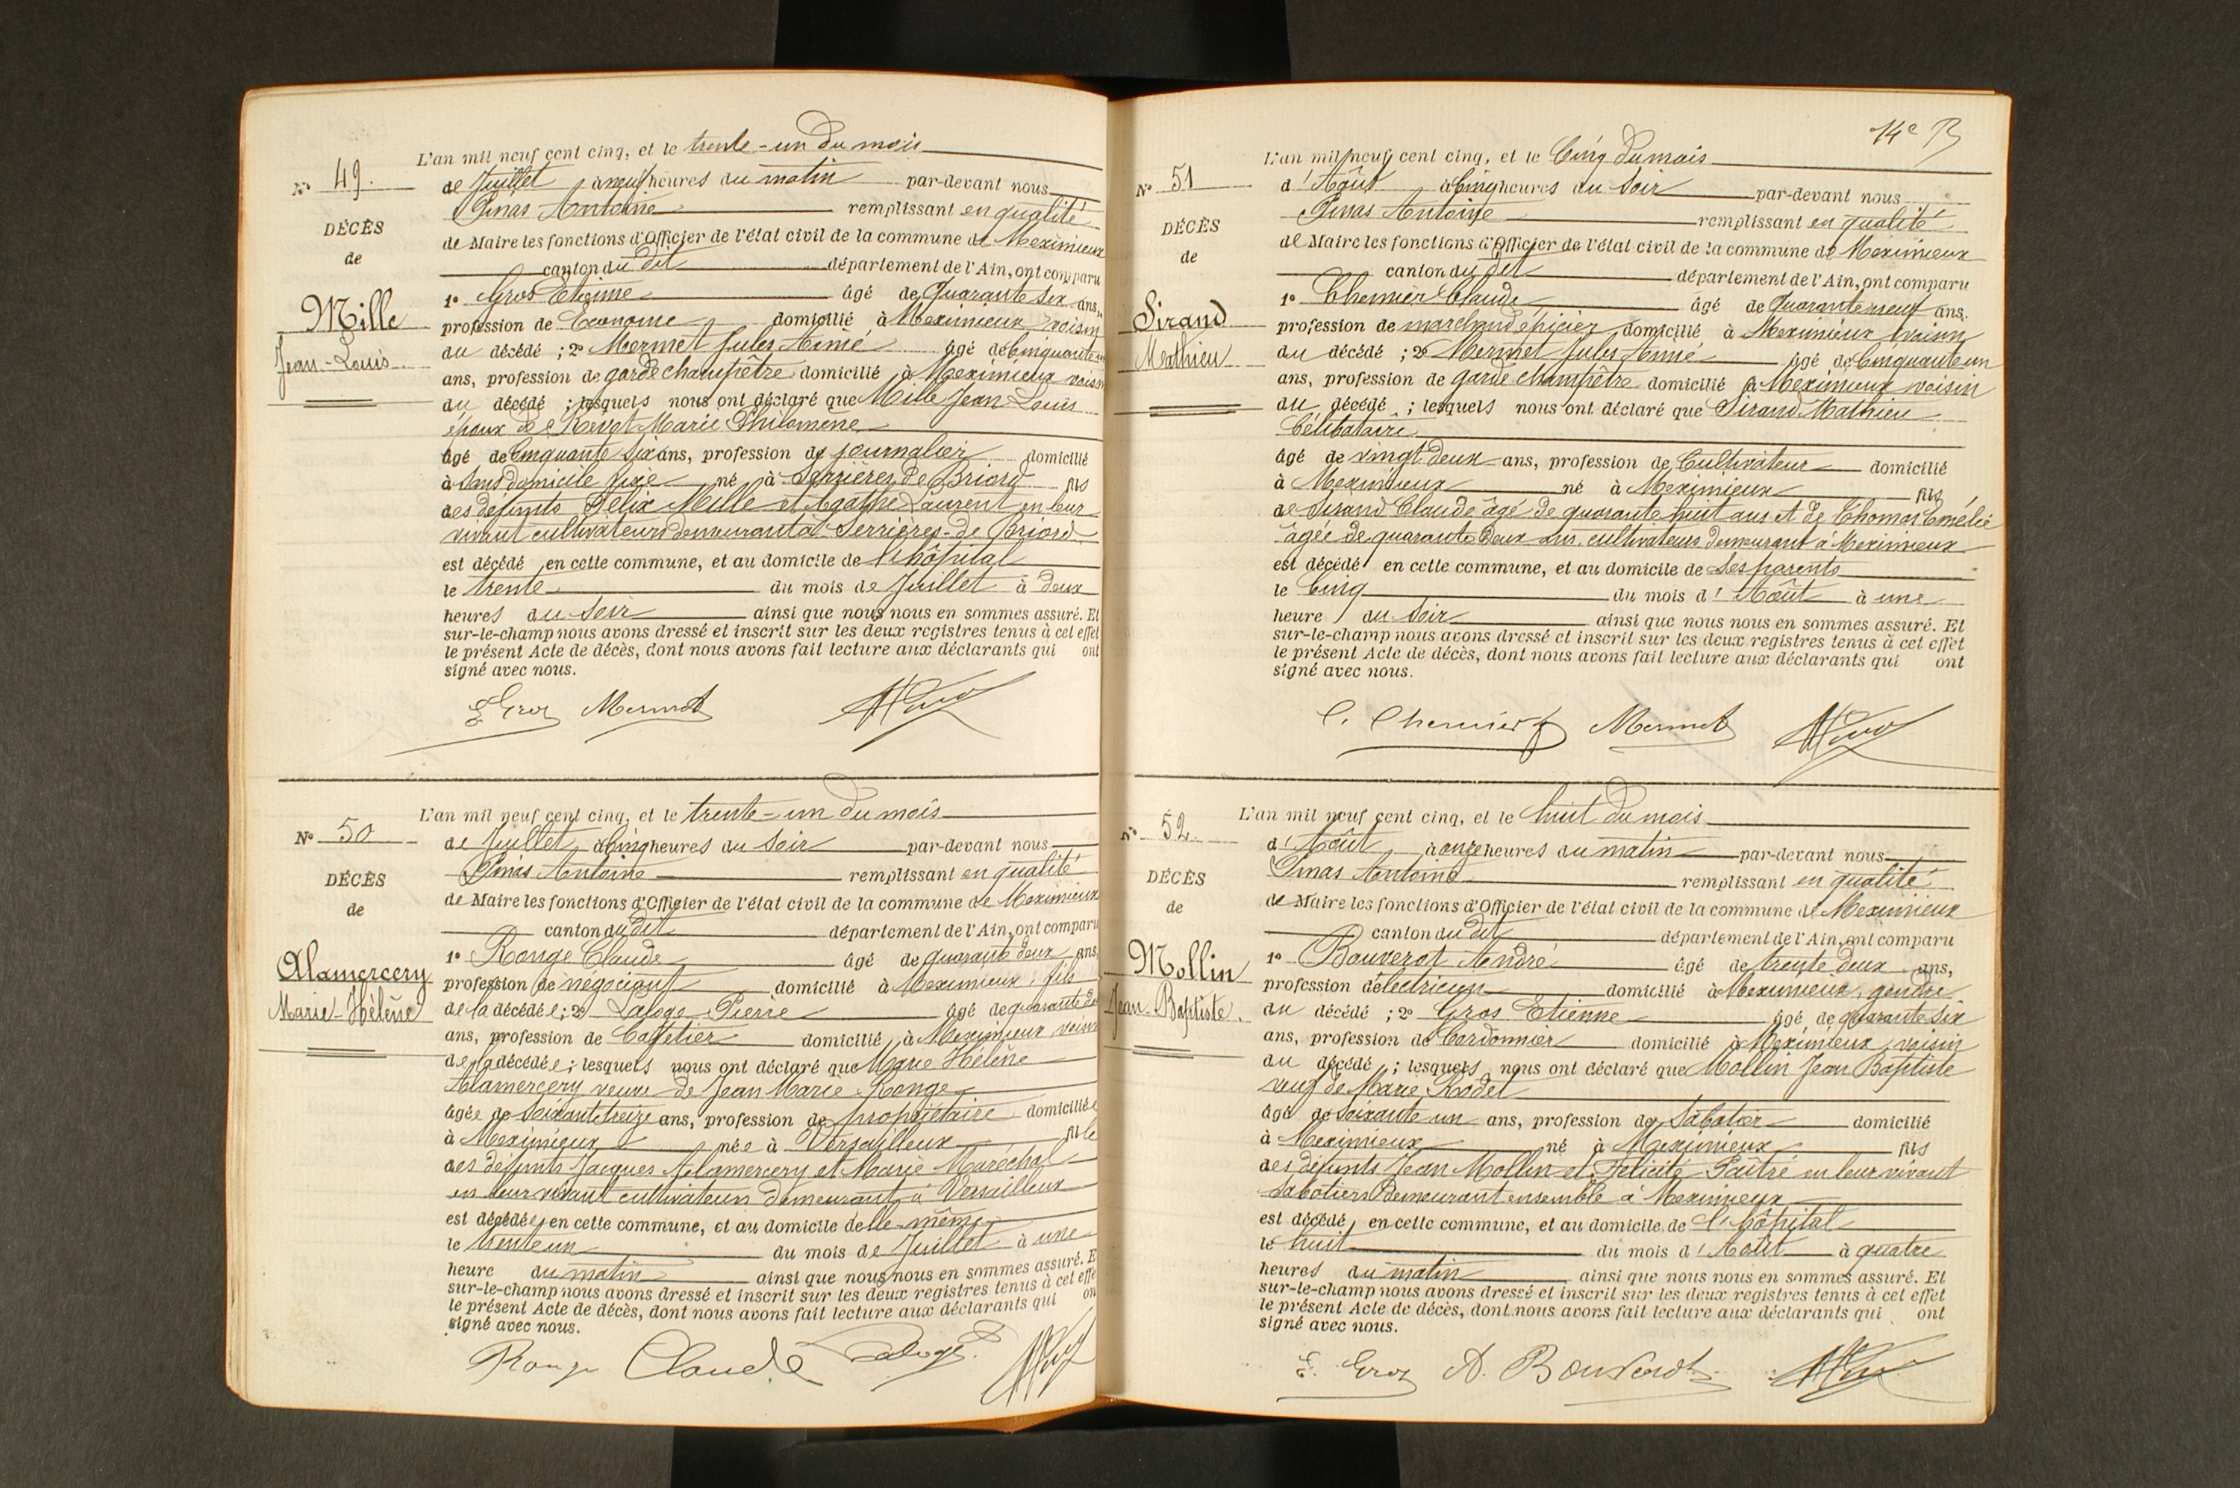 Nº 49.
DÉCÈS
de
Mille
Jean-Louis
L'an mil neuf cent cinq, et le trente-un du mois
de Juillet à neuf heures du matin par-devant nous
Pinas Antoine remplissant en qualité
de Maire les fonctions d'Officier de l'état civil de la commune de Meximieux
canton du dit département de l'Ain, ont comparu
1º Gros Etienne âgé de Quarante six ans,
profession de Econome domicilié à Meximieux voisin
du décédé ; 2º Mermet Jules Aimé âgé de Cinquante un
ans, profession de garde champêtre domicilié à Meximieux voisin
du décédé ; lesquels nous ont déclaré que Mille Jean Louis
époux de Revet Marie Philomène
âgé de Cinquante six ans, profession de journalier domicilié
à sans domicile fixe né à Serrières de Briord fils
des défunts Félix Mille et Agathe Laurent en leur
vivant cultivateurs demeurant à Serrières-de Briord
est décédé en cette commune, et au domicile de l'hôpital
le trente du mois de Juillet à deux
heures du soir ainsi que nous nous en sommes assuré. Et
sur-le-champ nous avons dressé et inscrit sur les deux registres tenus à cet effet
le présent Acte de décès, dont nous avons fait lecture aux déclarants qui ont
signé avec nous.
E Gros Mermet
Nº 50
DÉCÈS
de
Alamercery
Marie-Hélène
L'an mil neuf cent cinq, et le trente-un du mois
de Juillet à Cinq heures du soir par-devant nous
Pinas Antoine remplissant en qualité
de Maire les fonctions d'Officier de l'état civil de la commune de Meximieux
canton du dit département de l'Ain, ont comparu
1º Ronge Claude âgé de quarante deux ans,
profession de négociant domicilié à Meximieux, fils
de la décédée ; 2º Laloge Pierre âgé de quarante
ans, profession de Cafetier domicilié à Meximieux voisin
de la décédée ; lesquels nous ont déclaré que Marie Hélène
Alamercery veuve de Jean Marie Ronge
âgée de soixante treize ans, profession de propriétaire domiciliée
à Meximieux née à Versailleux fille
des défunts Jacques Alamercery et Marie Maréchal
en leur vivant cultivateurs demeurant à Versailleux
est décédée en cette commune, et au domicile d'elle-même
le trente un du mois de Juillet à une
heure du matin ainsi que nous nous en sommes assuré. E
sur-le-champ nous avons dressé et inscrit sur les deux registres tenus à cet effe
le présent Acte de décès, dont nous avons fait lecture aux déclarants qui on
signé avec nous.
Ronge Claude Laloge P
14e B
Nº 51
DÉCÈS
de
Sirand
Mathieu
L'an mil neuf cent cinq, et le Cinq du mois
d'Août à Cinq heures du soir par-devant nous
Pinas Antoine remplissant en qualité
de Maire les fonctions d'Officier de l'état civil de la commune de Meximieux
canton du dit département de l'Ain, ont comparu
1º Chemier Claude âgé de Quarante neuf ans,
profession de marchand épicier domicilié à Meximieux voisin
du décédé ; 2º Mermet Jules Aimé âgé de Cinquante un
ans, profession de garde champêtre domicilié à Meximieux voisin
du décédé ; lesquels nous ont déclaré que Sirand Mathieu
Célibataire
âgé de vingt deux ans, profession de Cultivateur domicilié
à Meximieux né à Meximieux fils
de Sirand Claude âgé de quarante huit ans et de Thomas Emélie
âgée de quarante deux ans, cultivateurs demeurant à Meximieux
est décédé en cette commune, et au domicile de ses parents
le Cinq du mois d'Août à une
heure du soir ainsi que nous nous en sommes assuré. Et
sur-le-champ nous avons dressé et inscrit sur les deux registres tenus à cet effet
le présent Acte de décès, dont nous avons fait lecture aux déclarants qui ont
signé avec nous.
C. Chemier Mermet
Nº 52.
DÉCÈS
de
Mollin
Jean-Baptiste.
L'an mil neuf cent cinq, et le huit du mois
d'Août à onze heures du matin par-devant nous
Pinas Antoine remplissant en qualité
de Maire les fonctions d'Officier de l'état civil de la commune de Meximieux
canton du dit département de l'Ain, ont comparu
1º Bouverot André âgé de trente deux ans,
profession d'électricien domicilié à Meximieux, gendre
du décédé ; 2º Gros Etienne âgé de quarante six
ans, profession de Cordonnier domicilié à Meximieux, voisin
du décédé ; lesquels nous ont déclaré que Mollin Jean Baptiste
veuf de Marie Rodet
âgé de soixante un ans, profession de Sabotier domicilié
à Meximieux né à Meximieux fils
des défunts Jean Mollin et Félicité Paîtré en leur vivant
sabotiers demeurant ensemble à Meximieux
est décédé en cette commune, et au domicile de l'hôpital
le huit du mois d'Août à quatre
heures du matin ainsi que nous nous en sommes assuré. Et
sur-le-champ nous avons dressé et inscrit sur les deux registres tenus à cet effet
le présent Acte de décès, dont nous avons fait lecture aux déclarants qui ont
signé avec nous.
E. Gros A. Bouverot